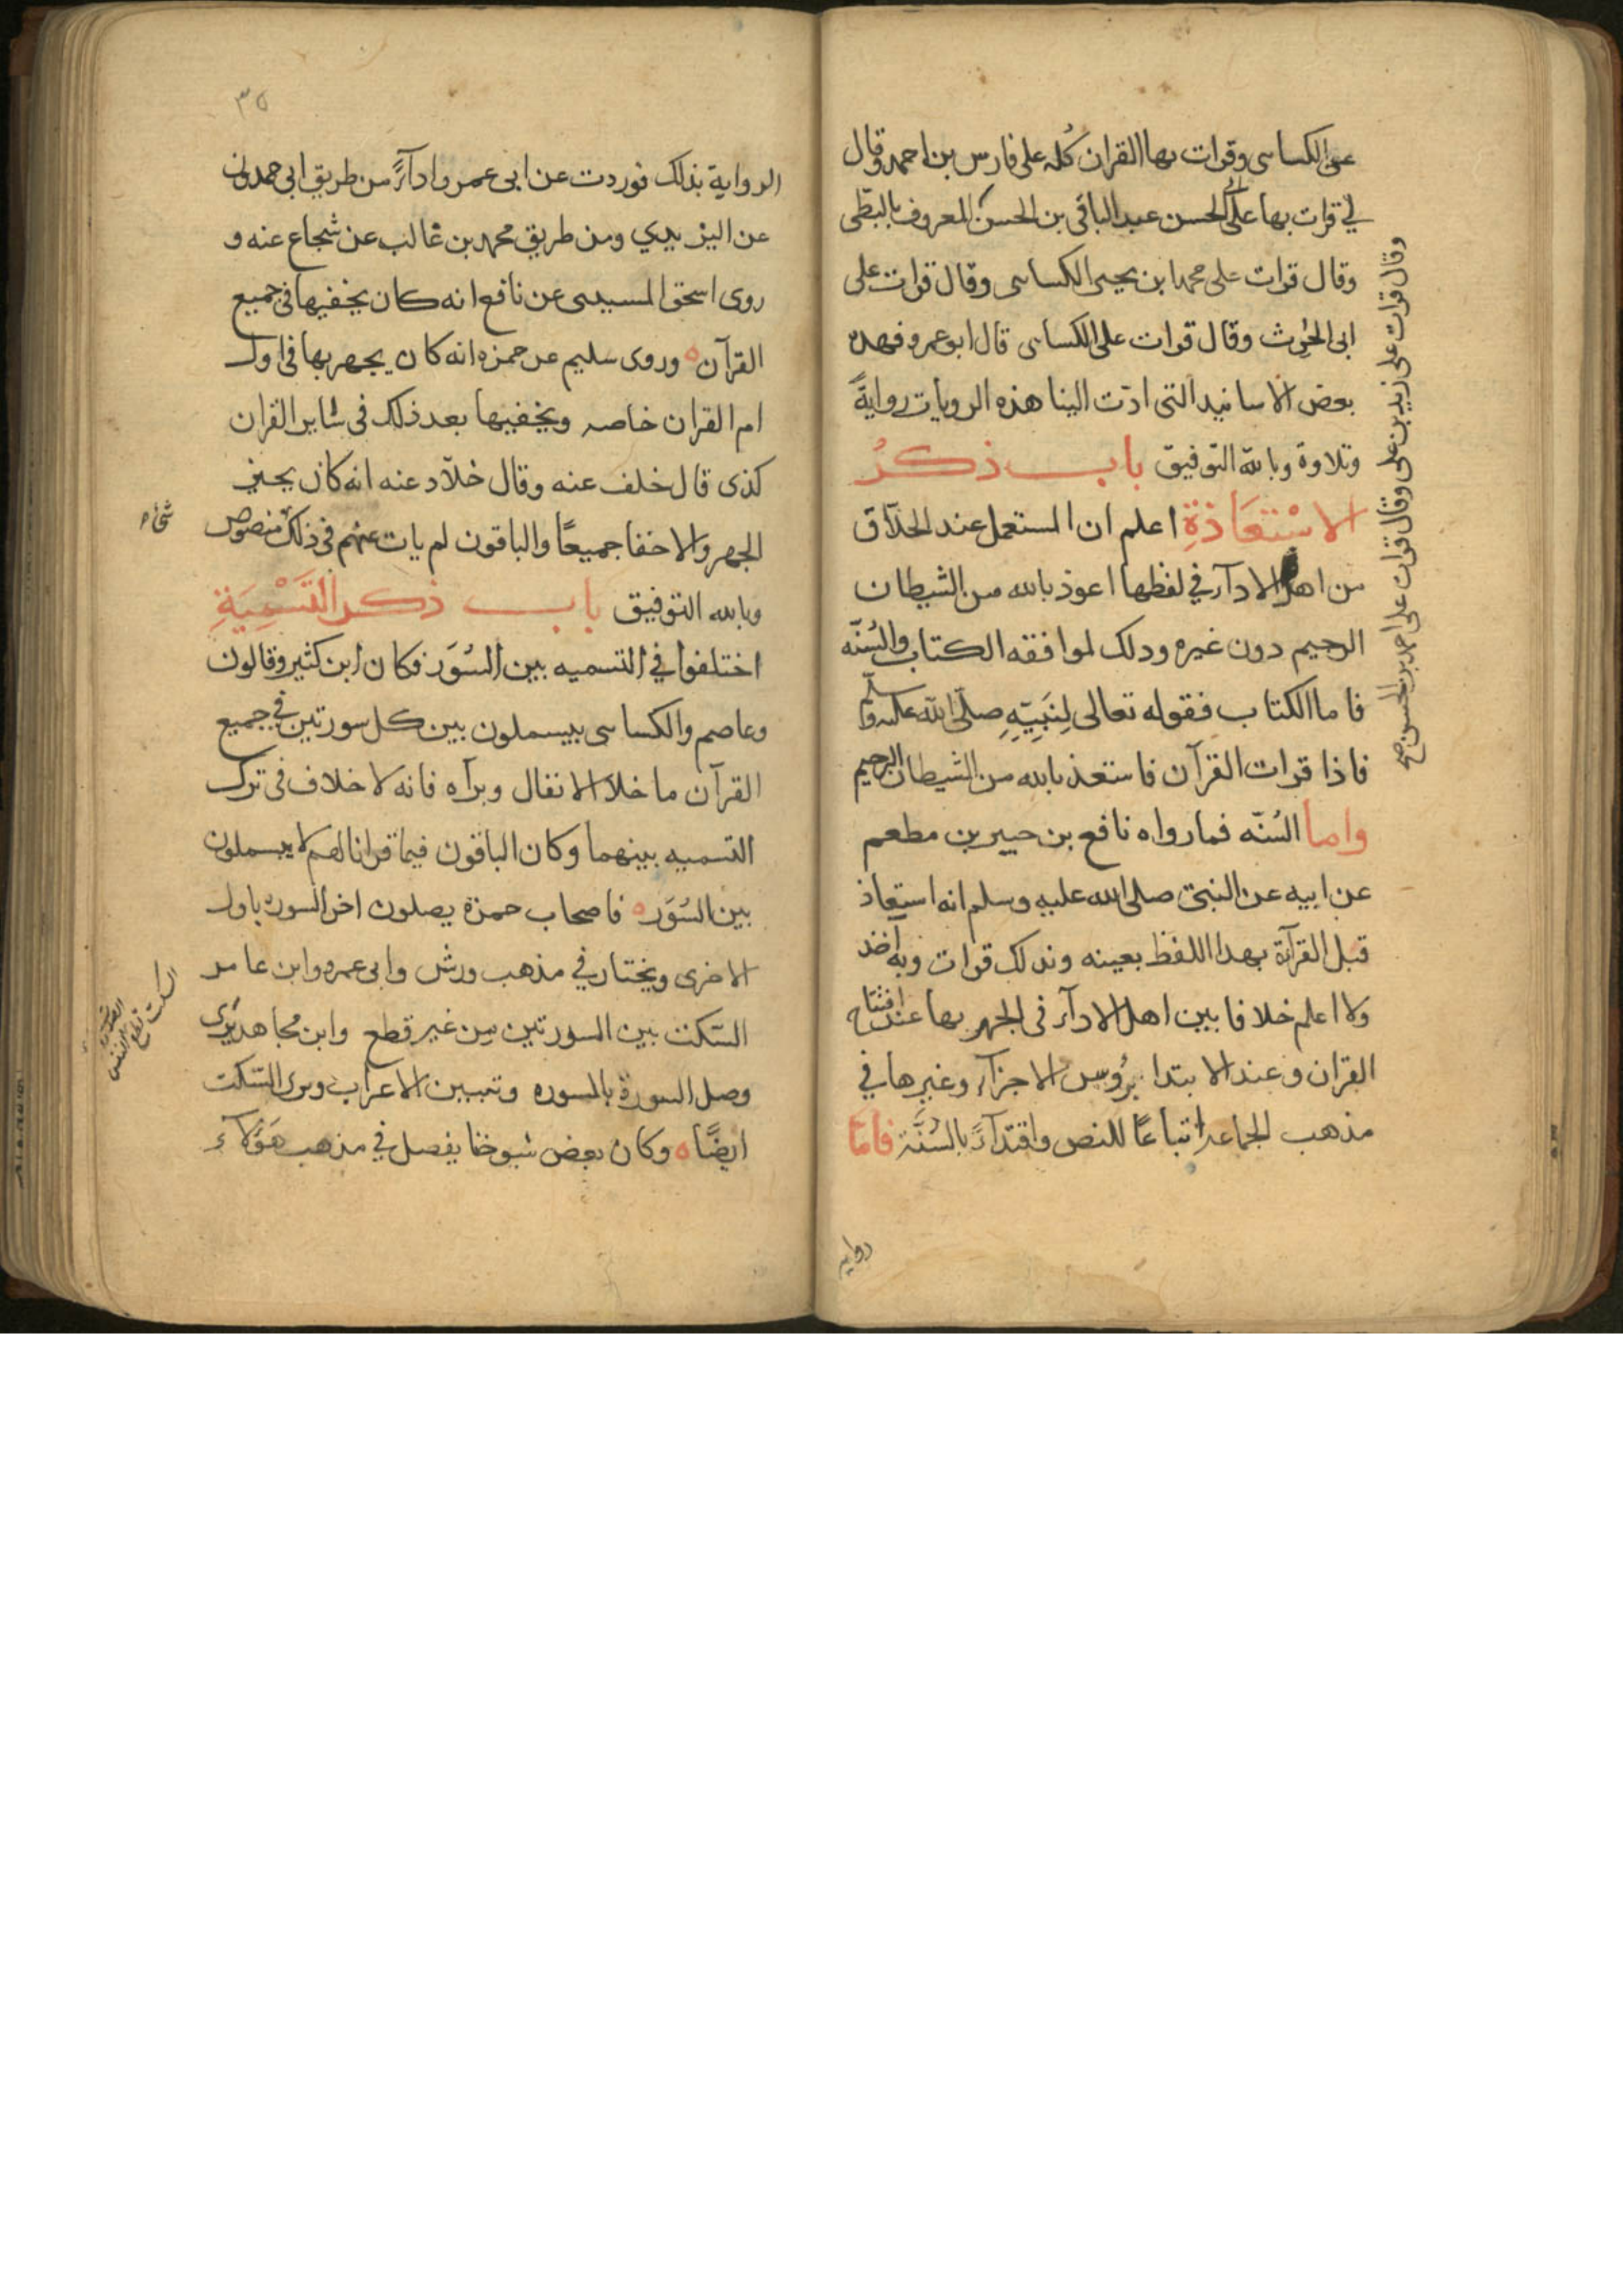 عن الكساى وقرات بها القران كُله على فارس بن احمد وقال
لي قرات بها على ابى الحسن عبد الباقى بن الحسن المعروف بالبطى
وقال قرات على محمد ابن يحيى الكساى وقال قرات على
ابى الحرث وقال قرات على الكساى قال ابو عمرو فهده
بعض الاسانيد التى ادّت الينا هذه الروايات روايةً
وتلاوة وبالله التوفيق باب ذكرُ
الاسْتعَاذةِ اعلم ان المستعمل عند الحذّاق
من اهل الادآء في لفظها اعوذ بالله من الشيطان
الرجيم دون غيره ودلك لموافقه الكتاب والسُنّه
فاما الكتاب فقوله تعالى لِنَبِيّهِ صلّى الله عليه وسلّم
فاذا قرات القرآن فاستعذ بالله من الشيطان الرجيم
واما السُنّه فما رواه نافع بن جبير بن مطعم
عن ابيه عن النبى صلى الله عليه وسلم انه استعاذ
قبل القرآة بهدا اللفظ بعينه وبدلك قرات وبه اخذ
ولا اعلم خلافا بين اهل الادآء فى الجهر بها عند افتتاح
القران وعند الابتدا برُوس الاجزآء وغيرها في
مذهب الجماعه اتباعًا للنص واقتدآءً بالسُنَّة فامّا
روايه
وقال قرات على زيد بن على وقال قرات على احمد بن الحسن صح
٣٥
الرواية بذلك فوردت عن ابى عمرو ادآءً من طريق ابي حمدون
عن اليزيدي ومن طريق محمد بن غالب عن شجاع عنه و
روى اسحق المسيبى عن نافع انه كان يخفيها فى جميع
القرآن ه وروى سليم عن حمزه انه كان يجهر بها فى اول
ام القران خاصه ويخفيها بعد ذلك فى ساير القران
كذى قال خلف عنه وقال خلّاد عنه انه كان يجيز
الجهر والاخفا جميعًا والباقون لم يات عنهم فى ذلك منصوص
وبالله التوفيق باب ذكر التَّسْمِيَةِ
اختلفوا في التسميه بين السُوَر فكان ابن كثير وقالون
وعاصم والكساى يبسملون بين كل سورتين في جميع
القرآن ما خلا الانفال وبرآه فانه لا خلاف فى ترك
التسميه بينهما وكان الباقون فيما قرانا لهم لا يبسملون
بين السُوَر ه فاصحاب حمزة يصلون اخر السوره باول
الاخرى ويختار في مذهب ورش وابى عمرو وابن عامر
السّكت بين السورتين من غير قطع وابن مجاهد يَرى
وصل السورة بالسوره وتبيين الاعراب ويرى السّكت
ايضًا ه وكان بعض شيوخنا يفصل في مذهب هَؤُلآء